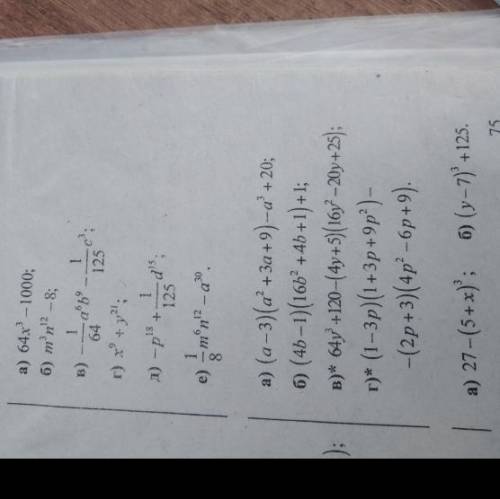 а) 64x³ − 1000;
б) m³n¹² − 8;
в) −1/64 a⁶b⁹ − 1/125 c³;
г) x⁹ + y²¹;
д) −p¹⁸ + 1/125 d¹⁵;
е) 1/8 m⁶n¹² − a³⁰.
а) (a − 3)(a² + 3a + 9) − a³ + 20;
б) (4b − 1)(16b² + 4b + 1) + 1;
в)* 64y³ + 120 − (4y + 5)(16y² − 20y + 25);
г)* (1 − 3p)(1 + 3p + 9p²) −
− (2p + 3)(4p² − 6p + 9).
);
а) 27 − (5 + x)³; б) (y − 7)³ + 125.
75